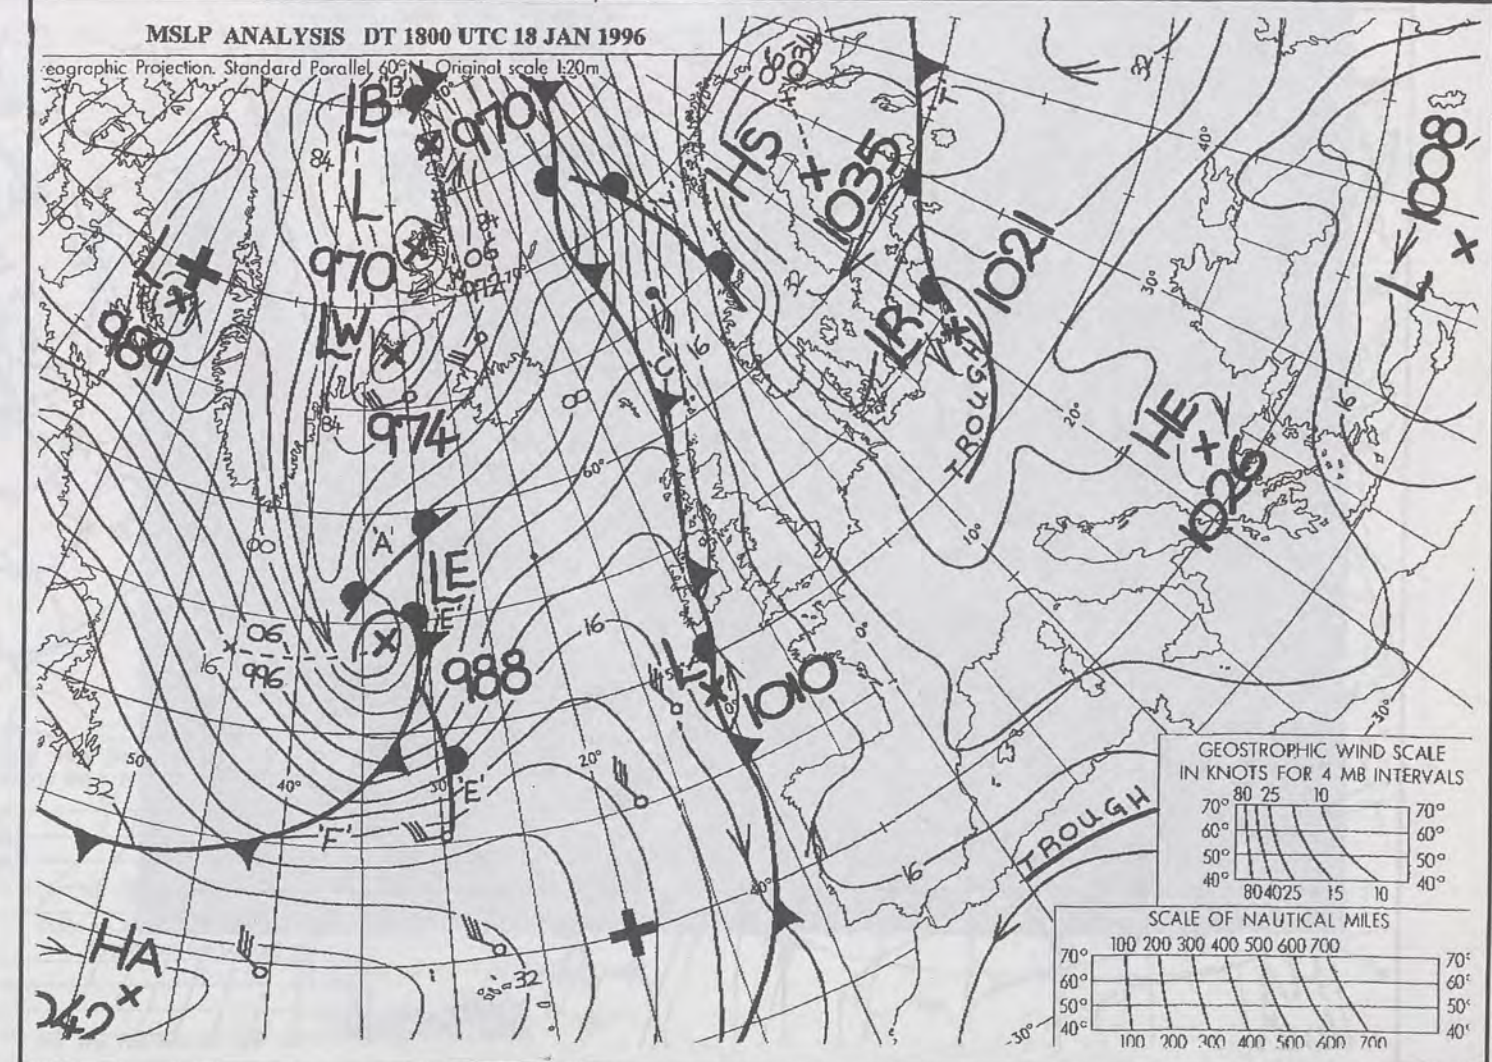 MSLP ANALYSIS DT 1800 UTC 18 JAN 1996
eographic Projection. Standard Parallel 60° Original scale 1:20m
LB
'B'
970
84
L
970
06
972
L
989
LW
974
84
HS
1034
1035
32
32
40°
1008
L
1021
LR
TROUGH
30°
16
C
16
20°
HE
1026
16
60°
10°
00
'A'
LE
'E'
988
06
996
16
0°
L
1010
50°
40°
30°
20°
32
'E'
'F'
40°
16
TROUGH
30°
HA
32
30°
GEOSTROPHIC WIND SCALE
IN KNOTS FOR 4 MB INTERVALS
80 25 10
70° 70°
60° 60°
50° 50°
40° 40°
80 40 25 15 10
SCALE OF NAUTICAL MILES
100 200 300 400 500 600 700
70° 70°
60° 60°
50° 50°
40° 40°
100 200 300 400 500 600 700